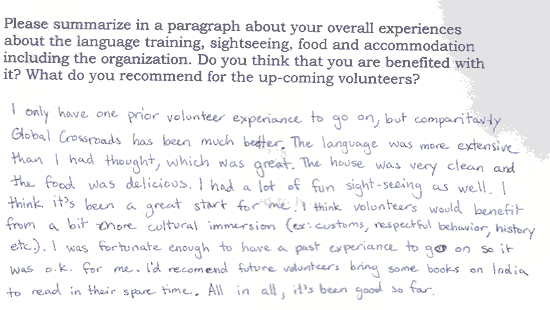 Please summarize in a paragraph about your overall experiences
about the language training, sightseeing, food and accommodation
including the organization. Do you think that you are benefited with
it? What do you recommend for the up-coming volunteers?
I only have one prior volunteer experiance to go on, but comparitavly
Global Crossroads has been much better. The language was more extensive
than I had thought, which was great. The house was very clean and
the food was delicious. I had a lot of fun sight-seeing as well. I
think it's been a great start for me. I think volunteers would benefit
from a bit more cultural immersion (ex: customs, respectful behavior, history
etc.). I was fortunate enough to have a past experiance to go on so it
was o.k. for me. I'd recomend future volunteers bring some books on India
to read in their spare time. All in all, it's been good so far.